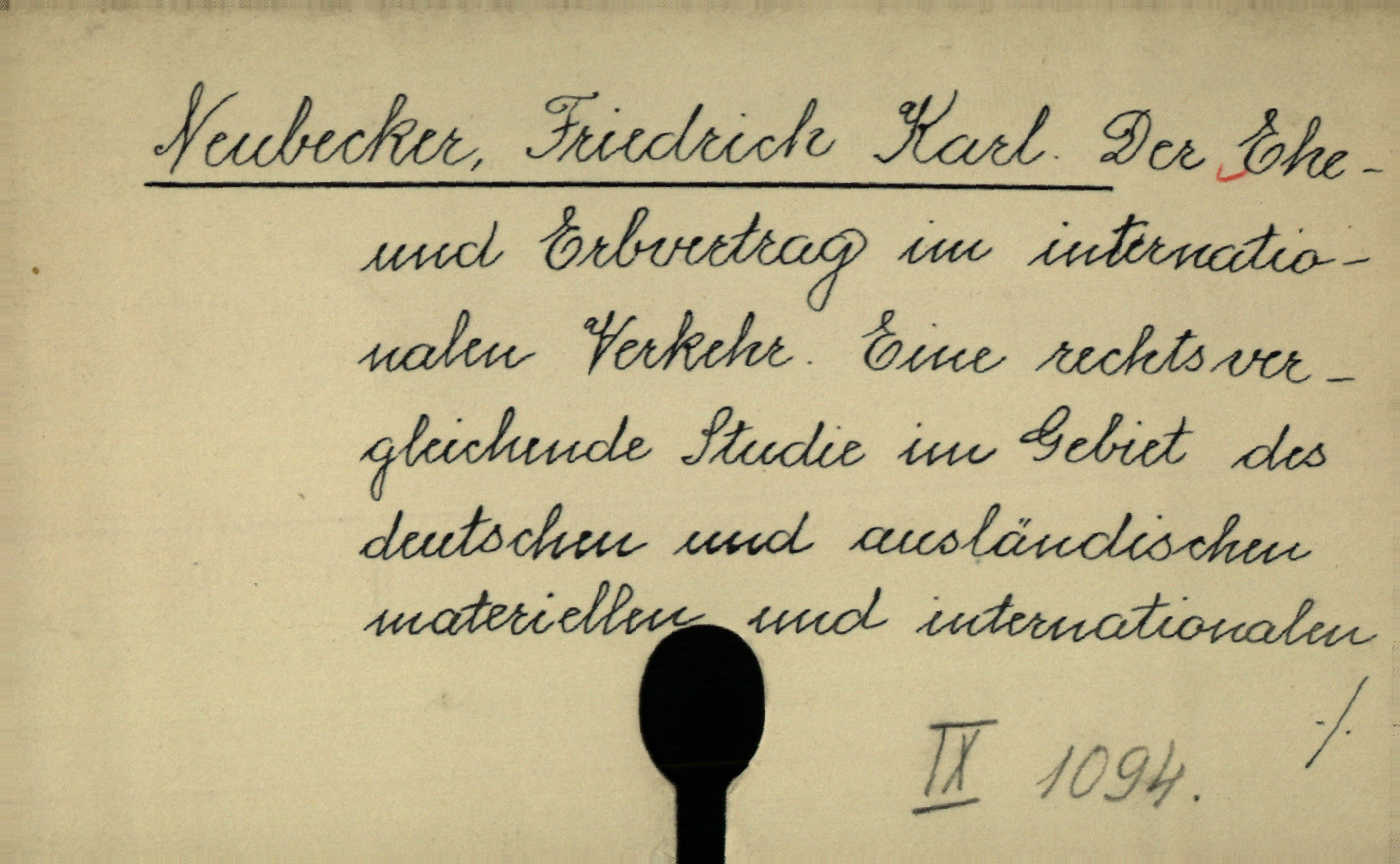 Neubecker, Friedrich Karl. Der Ehe-
und Erbvertrag im internatio-
nalen Verkehr. Eine rechtsver-
gleichende Studie im Gebiet des
deutschen und ausländischen
materiellen und internationalen
./.
IX 1094.